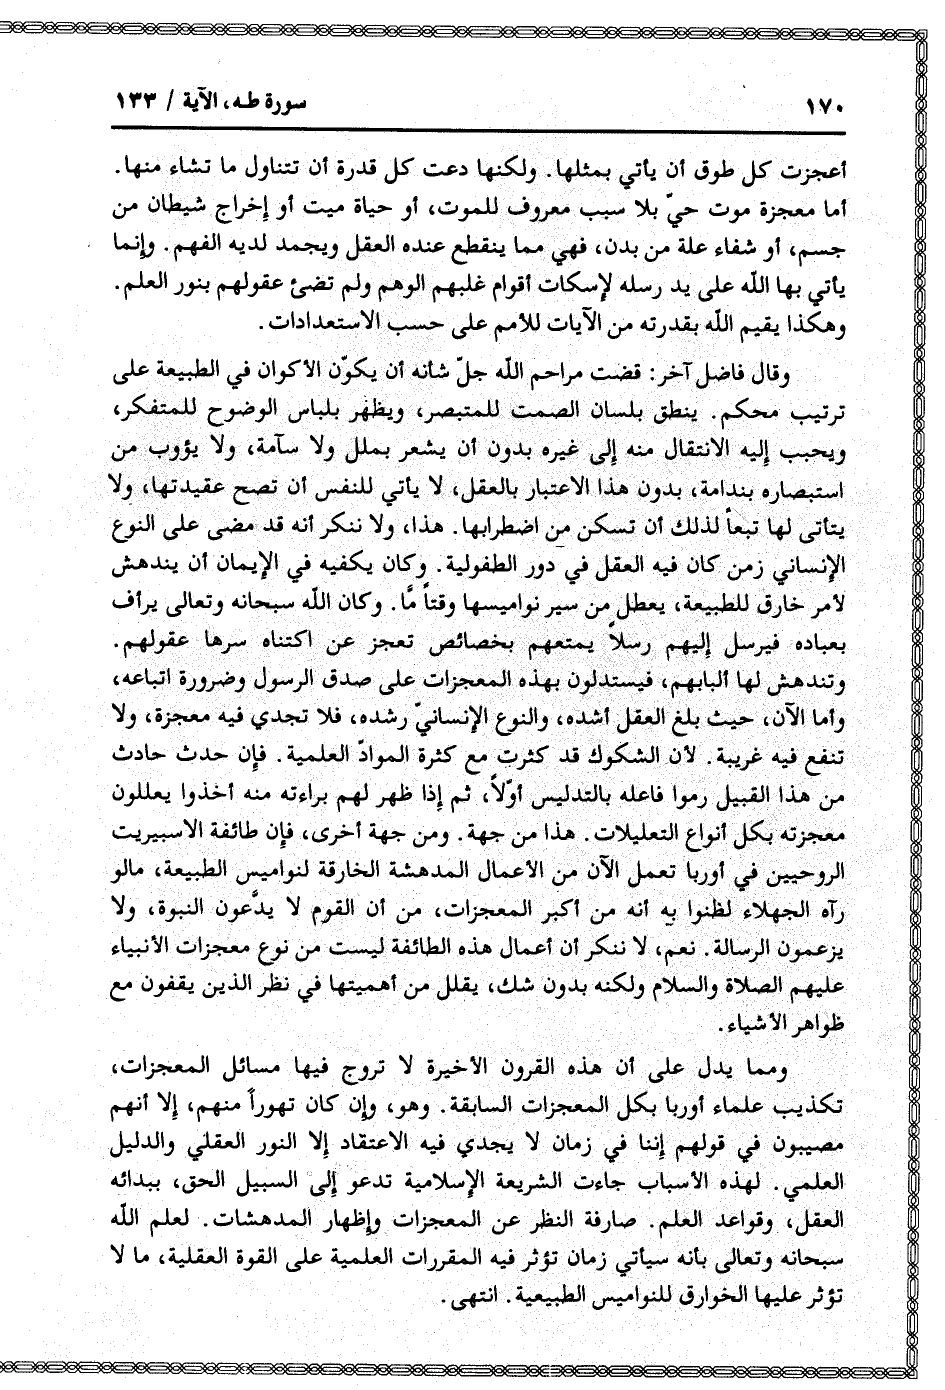 ١٧٠ سورة طه، الآية / ١٣٣
أعجزت كل طوق أن يأتي بمثلها. ولكنها دعت كل قدرة أن تتناول ما تشاء منها.
أما معجزة موت حيّ بلا سبب معروف للموت، أو حياة ميت أو إخراج شيطان من
جسم، أو شفاء علة من بدن، فهي مما ينقطع عنده العقل ويجمد لديه الفهم. وإنما
يأتي بها الله على يد رسله لإسكات أقوام غلبهم الوهم ولم تضئ عقولهم بنور العلم.
وهكذا يقيم الله بقدرته من الآيات للأمم على حسب الاستعدادات.
وقال فاضل آخر: قضت مراحم الله جلّ شأنه أن يكوّن الأكوان في الطبيعة على
ترتيب محكم. ينطق بلسان الصمت للمتبصر، ويظهر بلباس الوضوح للمتفكر،
ويحبب إليه الانتقال منه إلى غيره بدون أن يشعر بملل ولا سآمة، ولا يؤوب من
استبصاره بندامة، بدون هذا الاعتبار بالعقل، لا يأتي للنفس أن تصح عقيدتها، ولا
يتأتى لها تبعاً لذلك أن تسكن من اضطرابها. هذا، ولا ننكر أنه قد مضى على النوع
الإنساني زمن كان فيه العقل في دور الطفولية. وكان يكفيه في الإيمان أن يندهش
لأمر خارق للطبيعة، يعطل من سير نواميسها وقتاً مَّا. وكان الله سبحانه وتعالى يرأف
بعباده فيرسل إليهم رسلاً يمتعهم بخصائص تعجز عن اكتناه سرها عقولهم.
وتندهش لها ألبابهم، فيستدلون بهذه المعجزات على صدق الرسول وضرورة اتباعه،
وأما الآن، حيث بلغ العقل أشده، والنوع الإنسانيّ رشده، فلا تجدي فيه معجزة، ولا
تنفع فيه غريبة. لأن الشكوك قد كثرت مع كثرة الموادّ العلمية. فإن حدث حادث
من هذا القبيل رموا فاعله بالتدليس أوّلاً، ثم إذا ظهر لهم براءته منه أخذوا يعللون
معجزته بكل أنواع التعليلات. هذا من جهة. ومن جهة أخرى، فإن طائفة الاسبيريت
الروحيين في أوربا تعمل الآن من الأعمال المدهشة الخارقة لنواميس الطبيعة، مالو
رآه الجهلاء لظنوا به أنه من أكبر المعجزات، من أن القوم لا يدَّعون النبوة، ولا
يزعمون الرسالة. نعم، لا ننكر أن أعمال هذه الطائفة ليست من نوع معجزات الأنبياء
عليهم الصلاة والسلام ولكنه بدون شك، يقلل من أهميتها في نظر الذين يقفون مع
ظواهر الأشياء.
ومما يدل على أن هذه القرون الأخيرة لا تروج فيها مسائل المعجزات،
تكذيب علماء أوربا بكل المعجزات السابقة. وهو، وإن كان تهوراً منهم، إلا أنهم
مصيبون في قولهم إننا في زمان لا يجدي فيه الاعتقاد إلا النور العقلي والدليل
العلمي. لهذه الأسباب جاءت الشريعة الإسلامية تدعو إلى السبيل الحق، ببدائه
العقل، وقواعد العلم. صارفة النظر عن المعجزات وإظهار المدهشات. لعلم الله
سبحانه وتعالى بأنه سيأتي زمان تؤثر فيه المقررات العلمية على القوة العقلية، ما لا
تؤثر عليها الخوارق للنواميس الطبيعية. انتهى.